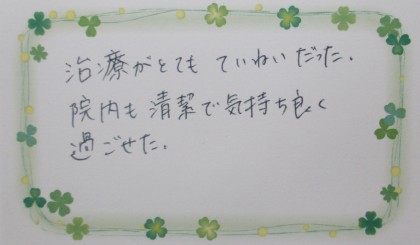 治療がとても ていねいだった.
院内も清潔で気持ち良く
過ごせた.